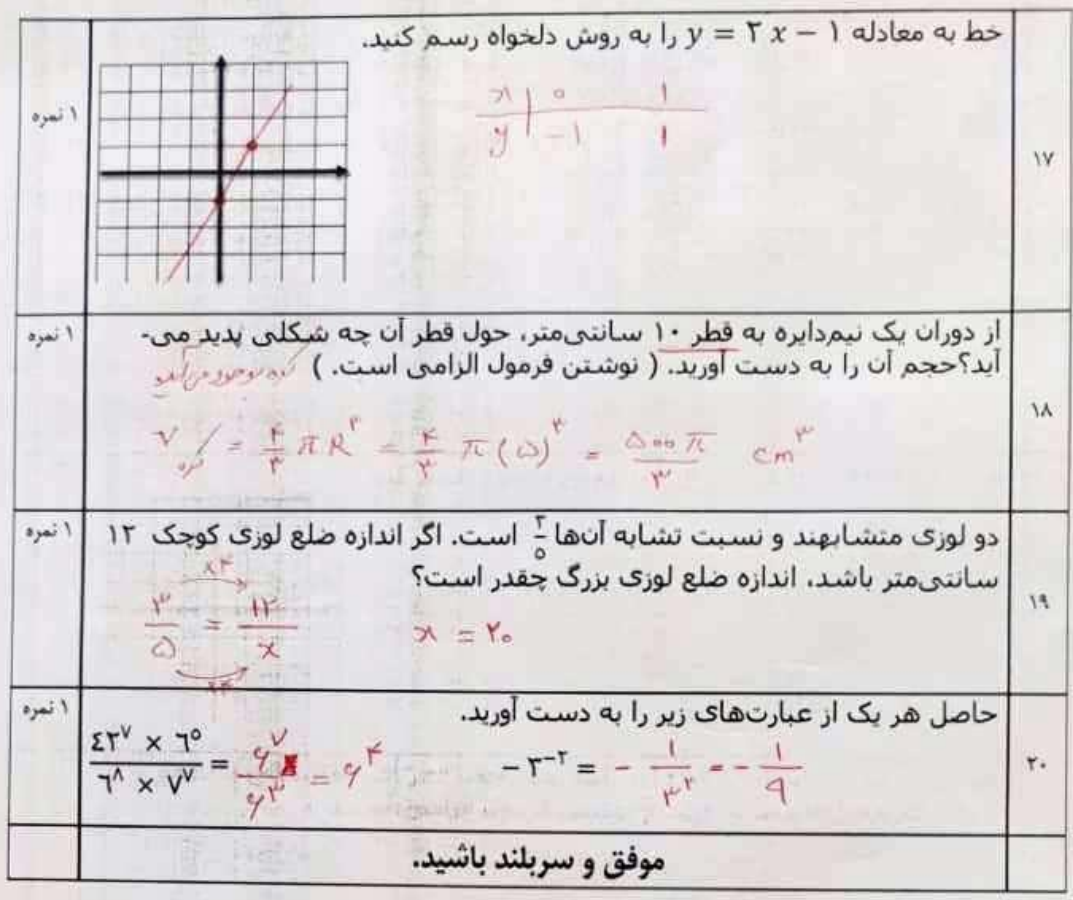 ۱۷
خط به معادله y = ۲ x − ۱ را به روش دلخواه رسم کنید.
۱ نمره
x | ० ۱
y | −۱ ۱
۱۸
از دوران یک نیم‌دایره به قطر ۱۰ سانتی‌متر، حول قطر آن چه شکلی پدید می-
آید؟حجم آن را به دست آورید. ( نوشتن فرمول الزامی است. ) کره بوجود می‌آید
۱ نمره
V کره = ۴/۳ πR^۳ = ۴/۳ π(۵)^۳ = ۵۰۰π/۳ cm^۳
۱۹
دو لوزی متشابهند و نسبت تشابه آن‌ها ۳/۵ است. اگر اندازه ضلع لوزی کوچک ۱۲
سانتی‌متر باشد، اندازه ضلع لوزی بزرگ چقدر است؟
۱ نمره
×۴
۳/۵ = ۱۲/x x = ۲۰
×۴
۲۰
حاصل هر یک از عبارت‌های زیر را به دست آورید.
۱ نمره
− ۳^−۲ = − ۱/۳^۲ = − ۱/۹
(٤۲^۷ × ٦^٥)/(٦^۸ × ۷^۷) = ۶^۷/۶^۳ = ۶^۴
موفق و سربلند باشید.